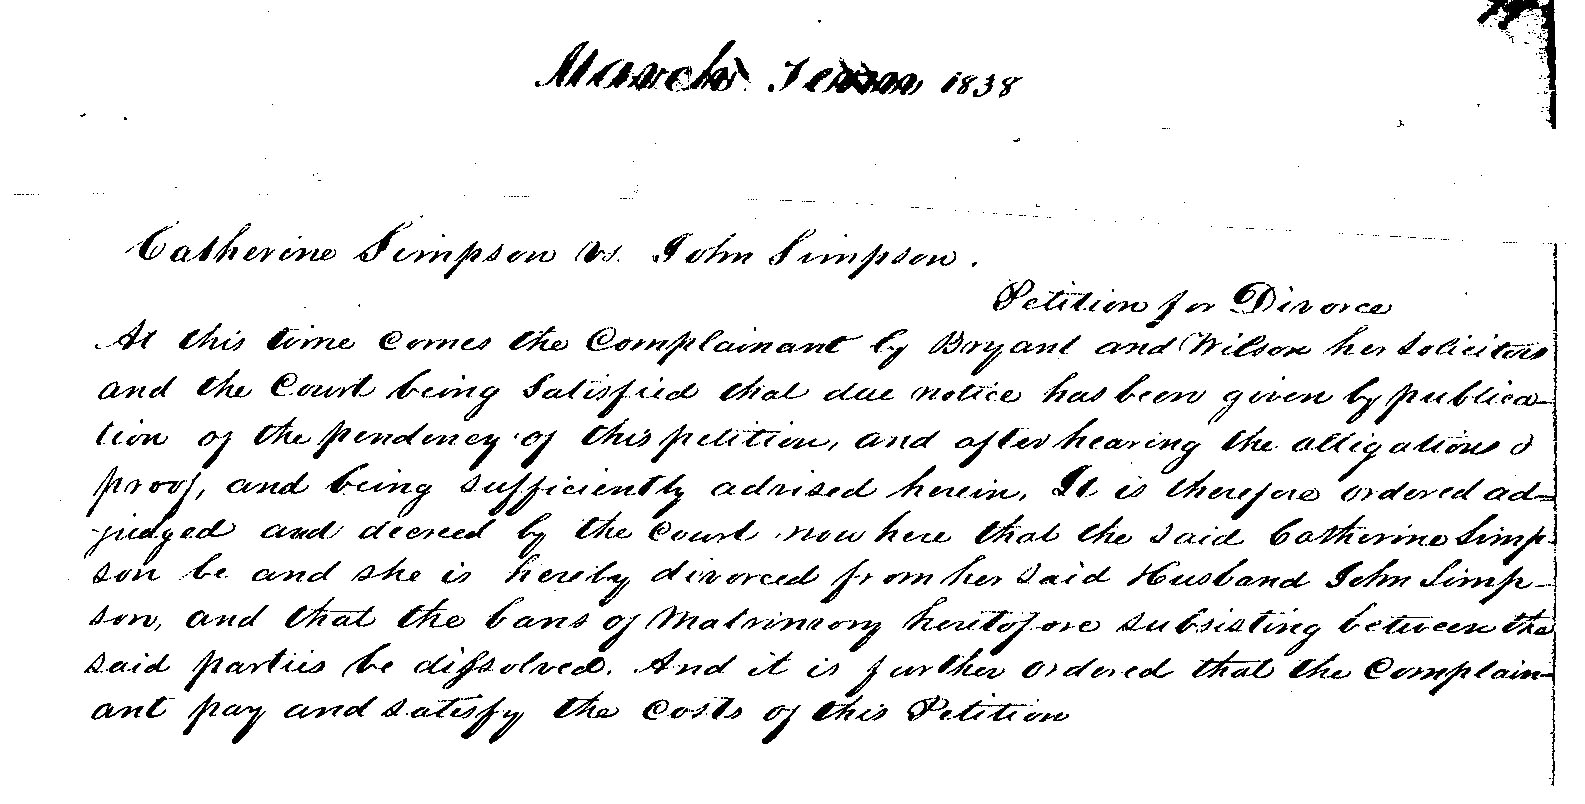 March Term 1838
Catherine Simpson vs. John Simpson.
Petition for Divorce
At this time comes the Complainant by Bryant and Wilson her Soliciters
and the Court being Satisfied that due notice has been given by publica-
tion of the pendency of this petition, and after hearing the alligations &
proof, and being sufficiently advised herein, It is therefore ordered ad=
judged and decreed by the Court now here that the said Catherine Simp-
son be and she is hereby divorced from her said Husband John Simp-
son, and that the bans of Matrimony heretofore subsisting between the
said parties be dissolved. And it is further ordered that the Complain-
ant pay and satisfy the Costs of this Petition